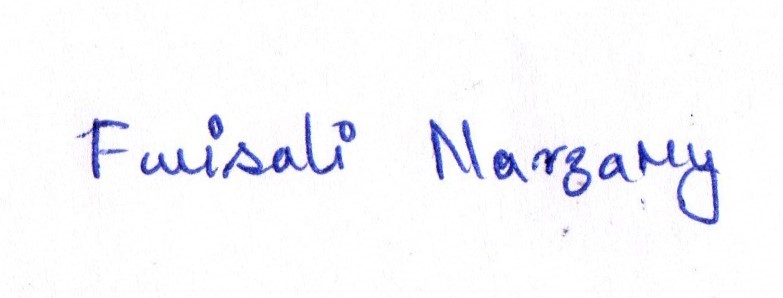 Fwisali Narzary